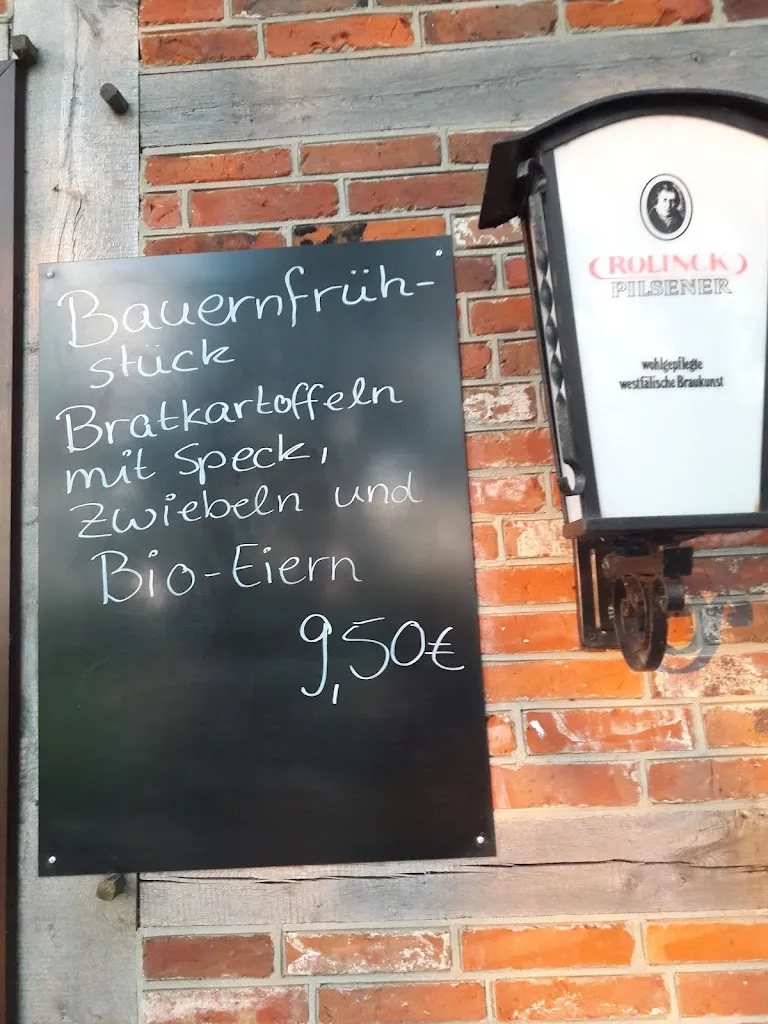 Bauernfrüh-
stück
Bratkartoffeln
mit Speck,
Zwiebeln und
Bio-Eiern
9,50€
ROLINCK
PILSENER
wohlgepflegte
westfälische Braukunst